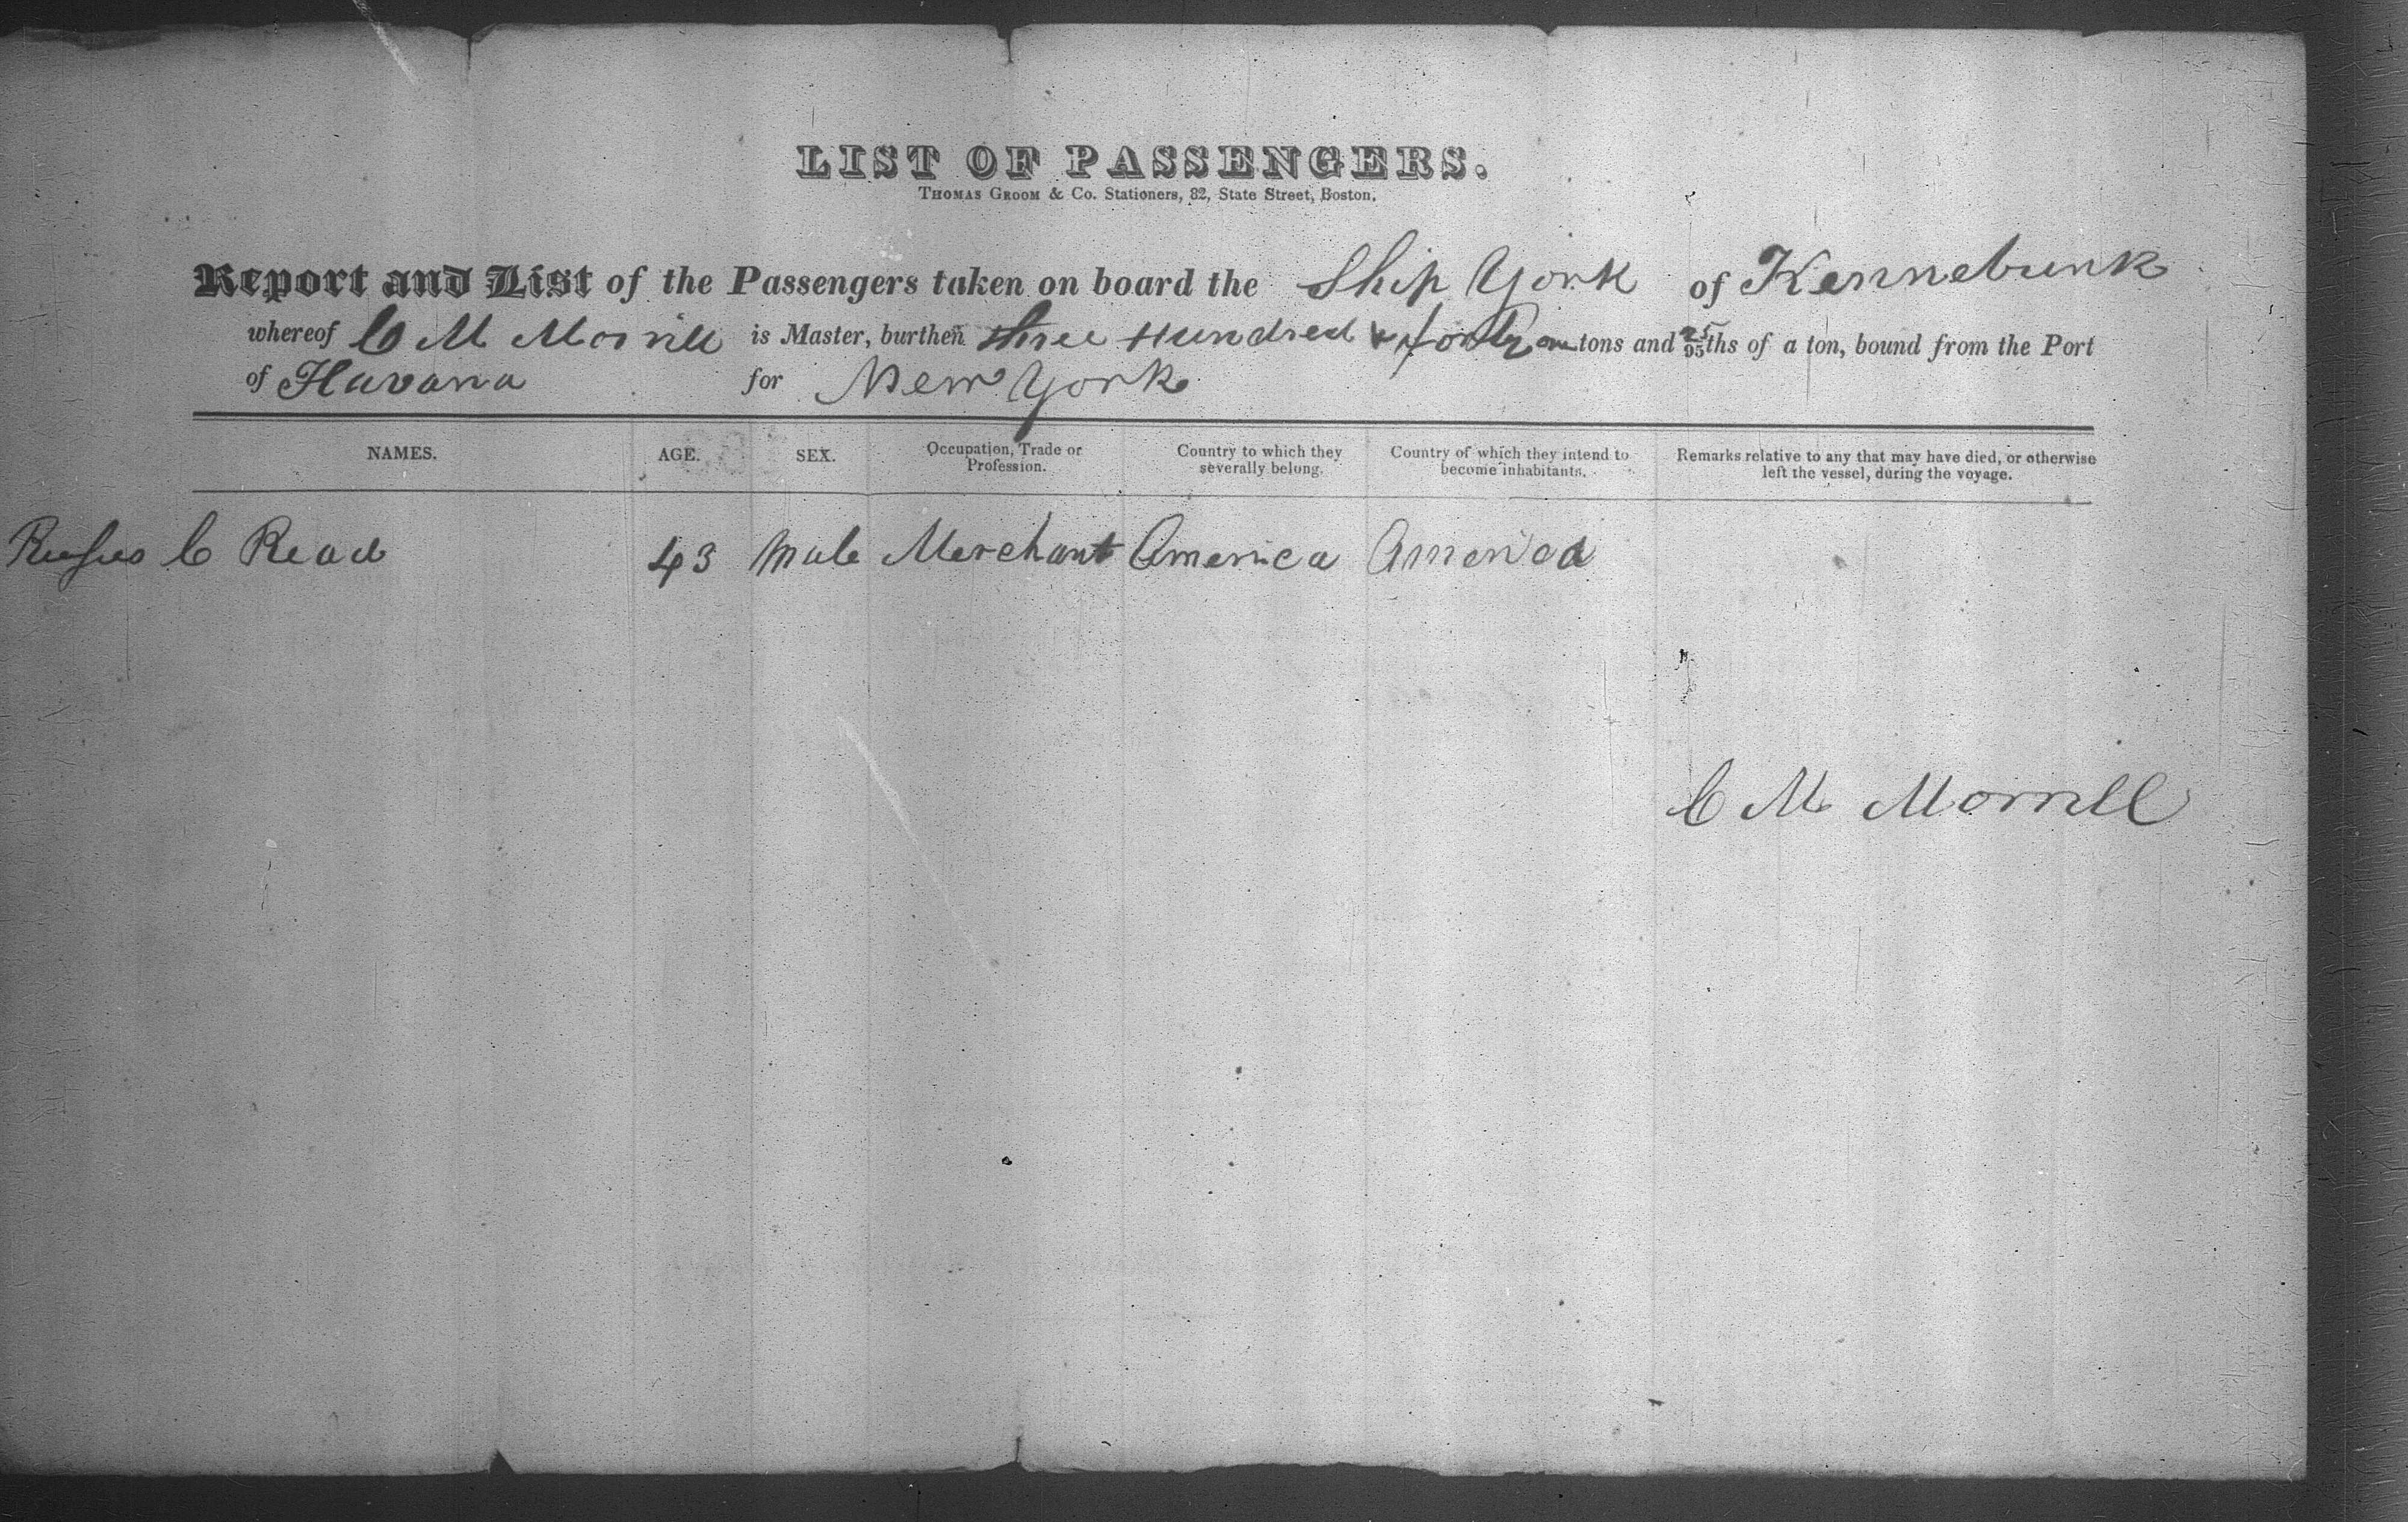 LIST OF PASSENGERS.
THOMAS GROOM & Co. Stationers, 82, State Street, Boston.
Report and List of the Passengers taken on board the Ship York of Kennebunk
whereof C M Morrill is Master, burthen three Hundred & forty one tons and 25/95ths of a ton, bound from the Port
of Havana for New York
NAMES. AGE. SEX. Occupation, Trade or Profession. Country to which they severally belong. Country of which they intend to become inhabitants. Remarks relative to any that may have died, or otherwise left the vessel, during the voyage.
Rufus C Read 43 Male Merchant America America
C M Morrill